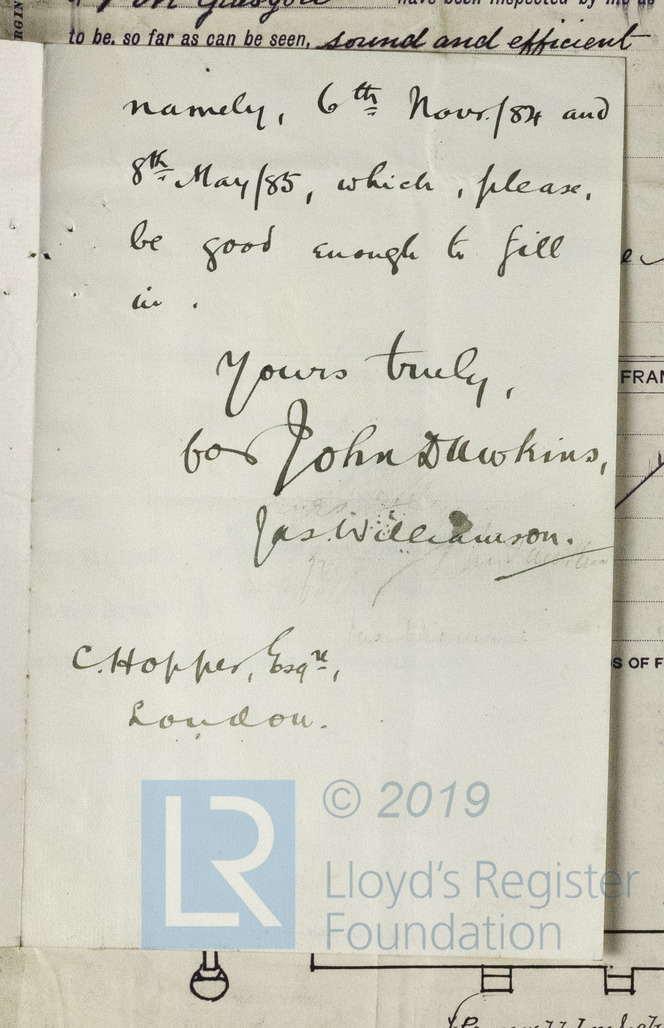 of Port Glasgow have been inspected by me
to be, so far as can be seen, sound and efficient
namely, 6th Novr./84 and
8th May/85, which, please,
be good enough to fill
in.
Yours truly,
for John Dawkins,
Jas. Williamson.
C. Hopper, Esqre,
London.
FRAM
S OF F
LR
© 2019
Lloyd's Register
Foundation